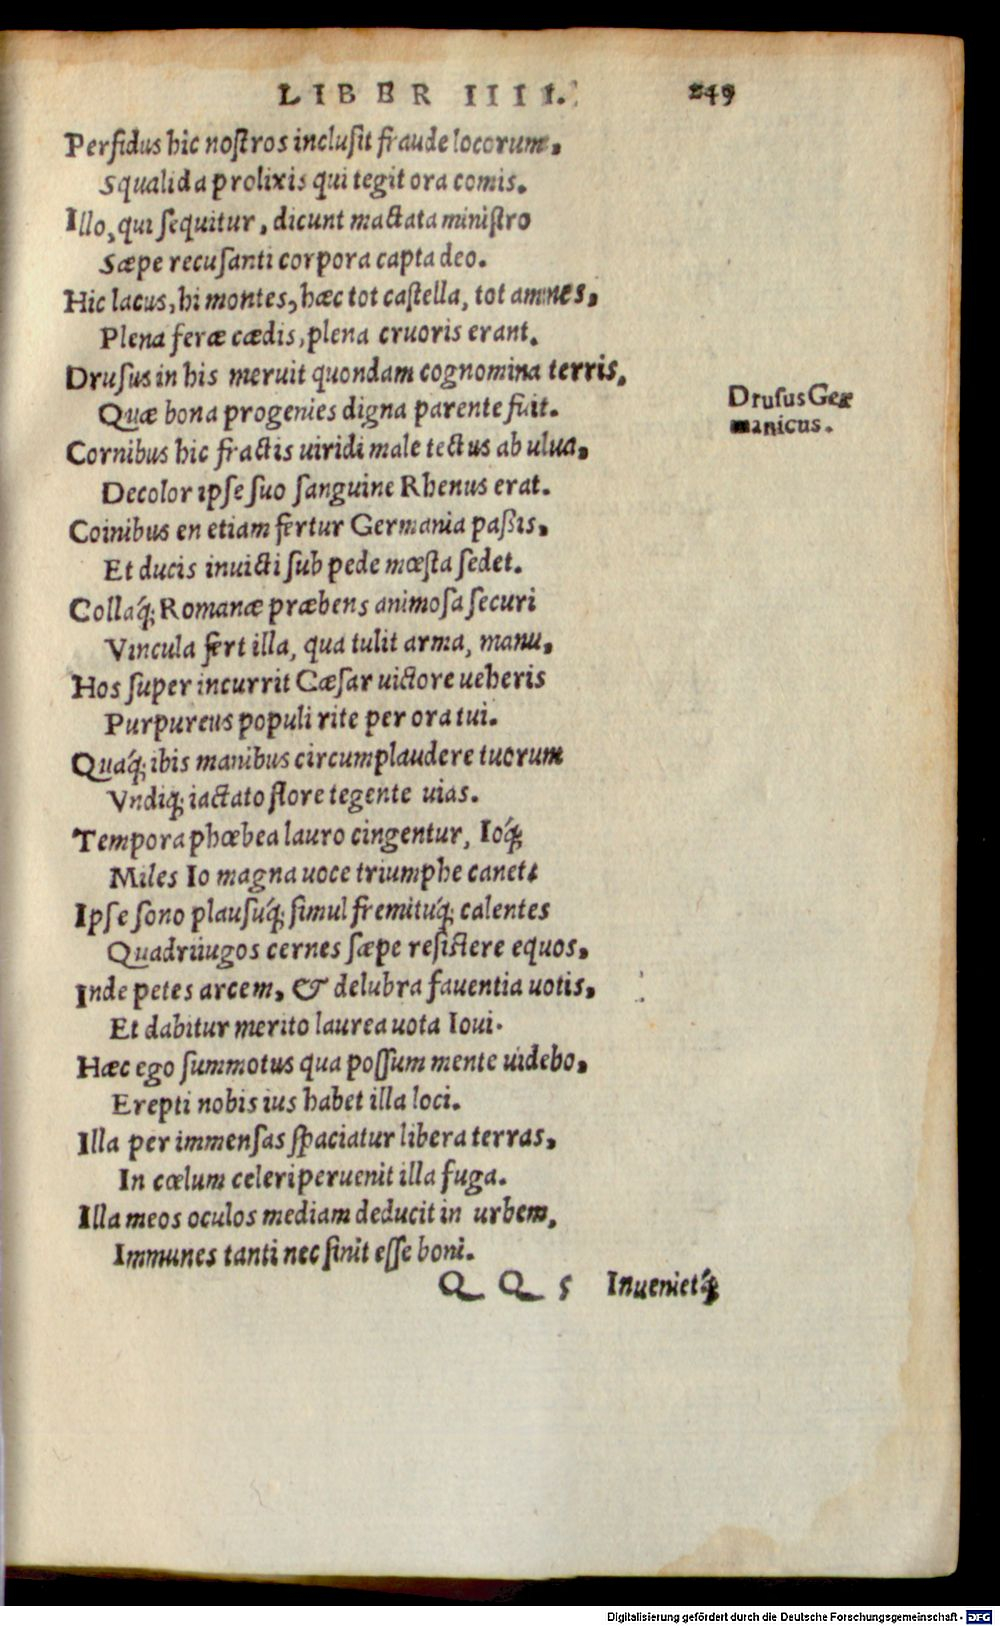 LIBER IIII. 249
Perfidus hic noſtros incluſit fraude locorum,
Squalida prolixis qui tegit ora comis.
Illo, qui ſequitur, dicunt mactata miniſtro
Sæpe recuſanti corpora capta deo.
Hic lacus, hi montes, hæc tot caſtella, tot amnes,
Plena feræ cædis, plena cruoris erant.
Druſus in his meruit quondam cognomina terris,
Quæ bona progenies digna parente fuit.
Druſus Ger
manicus.
Cornibus hic fractis uiridi male tectus ab ulua,
Decolor ipſe ſuo ſanguine Rhenus erat.
Coinibus en etiam fertur Germania paßis,
Et ducis inuicti ſub pede mœſta ſedet.
Collaq́; Romanæ præbens animoſa ſecuri
Vincula fert illa, qua tulit arma, manu,
Hos ſuper incurrit Cæſar uictore ueheris
Purpureus populi rite per ora tui.
Quaq́; ibis manibus circumplaudere tuorum
Vndiq; iactato flore tegente uias.
Tempora phœbea lauro cingentur, Ioq́;
Miles Io magna uoce triumphe canet:
Ipſe ſono plauſuq́; ſimul fremituq́; calentes
Quadriiugos cernes ſæpe reſiſtere equos,
Inde petes arcem, & delubra fauentia uotis,
Et dabitur merito laurea uota Ioui.
Hæc ego ſummotus qua poſſum mente uidebo,
Erepti nobis ius habet illa loci.
Illa per immenſas ſpaciatur libera terras,
In cœlum celeri peruenit illa fuga.
Illa meos oculos mediam deducit in urbem,
Immunes tanti nec ſinit eſſe boni.
QQ 5 Inuenietq́;
Digitalisierung gefördert durch die Deutsche Forschungsgemeinschaft - DFG